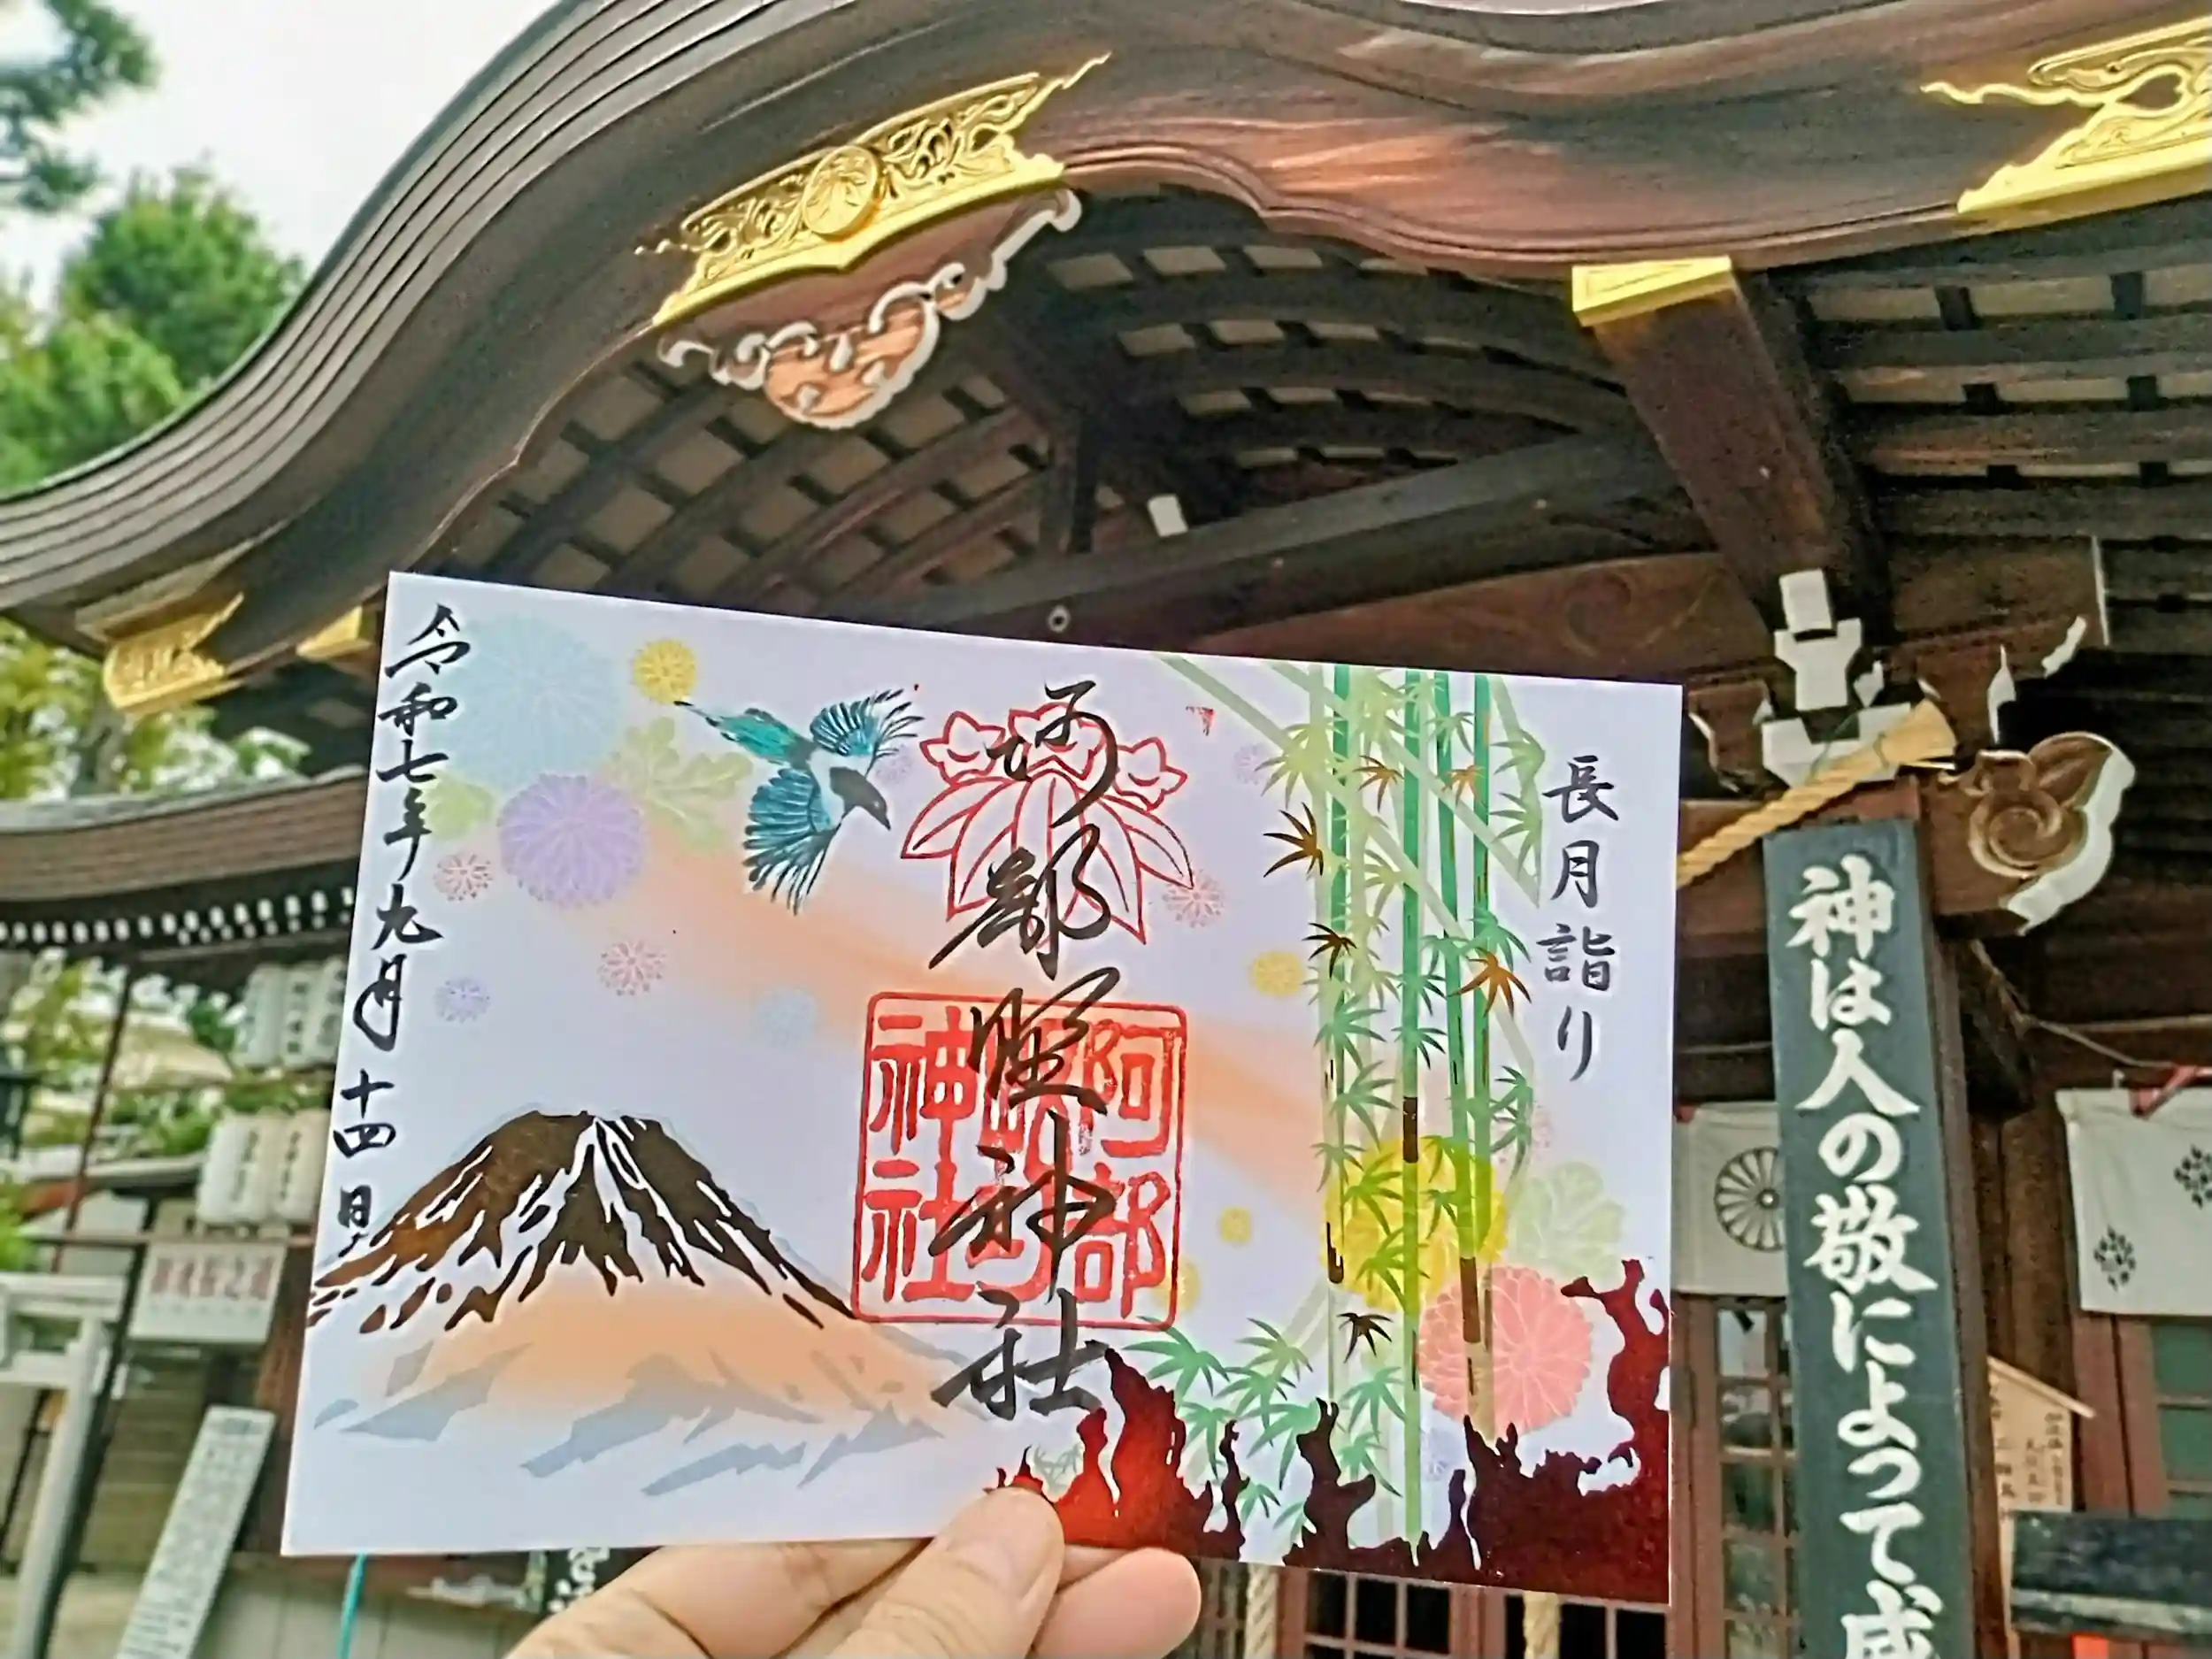 長月詣り
阿部野神社
阿部野神社
令和七年九月十四日
神は人の敬によって威